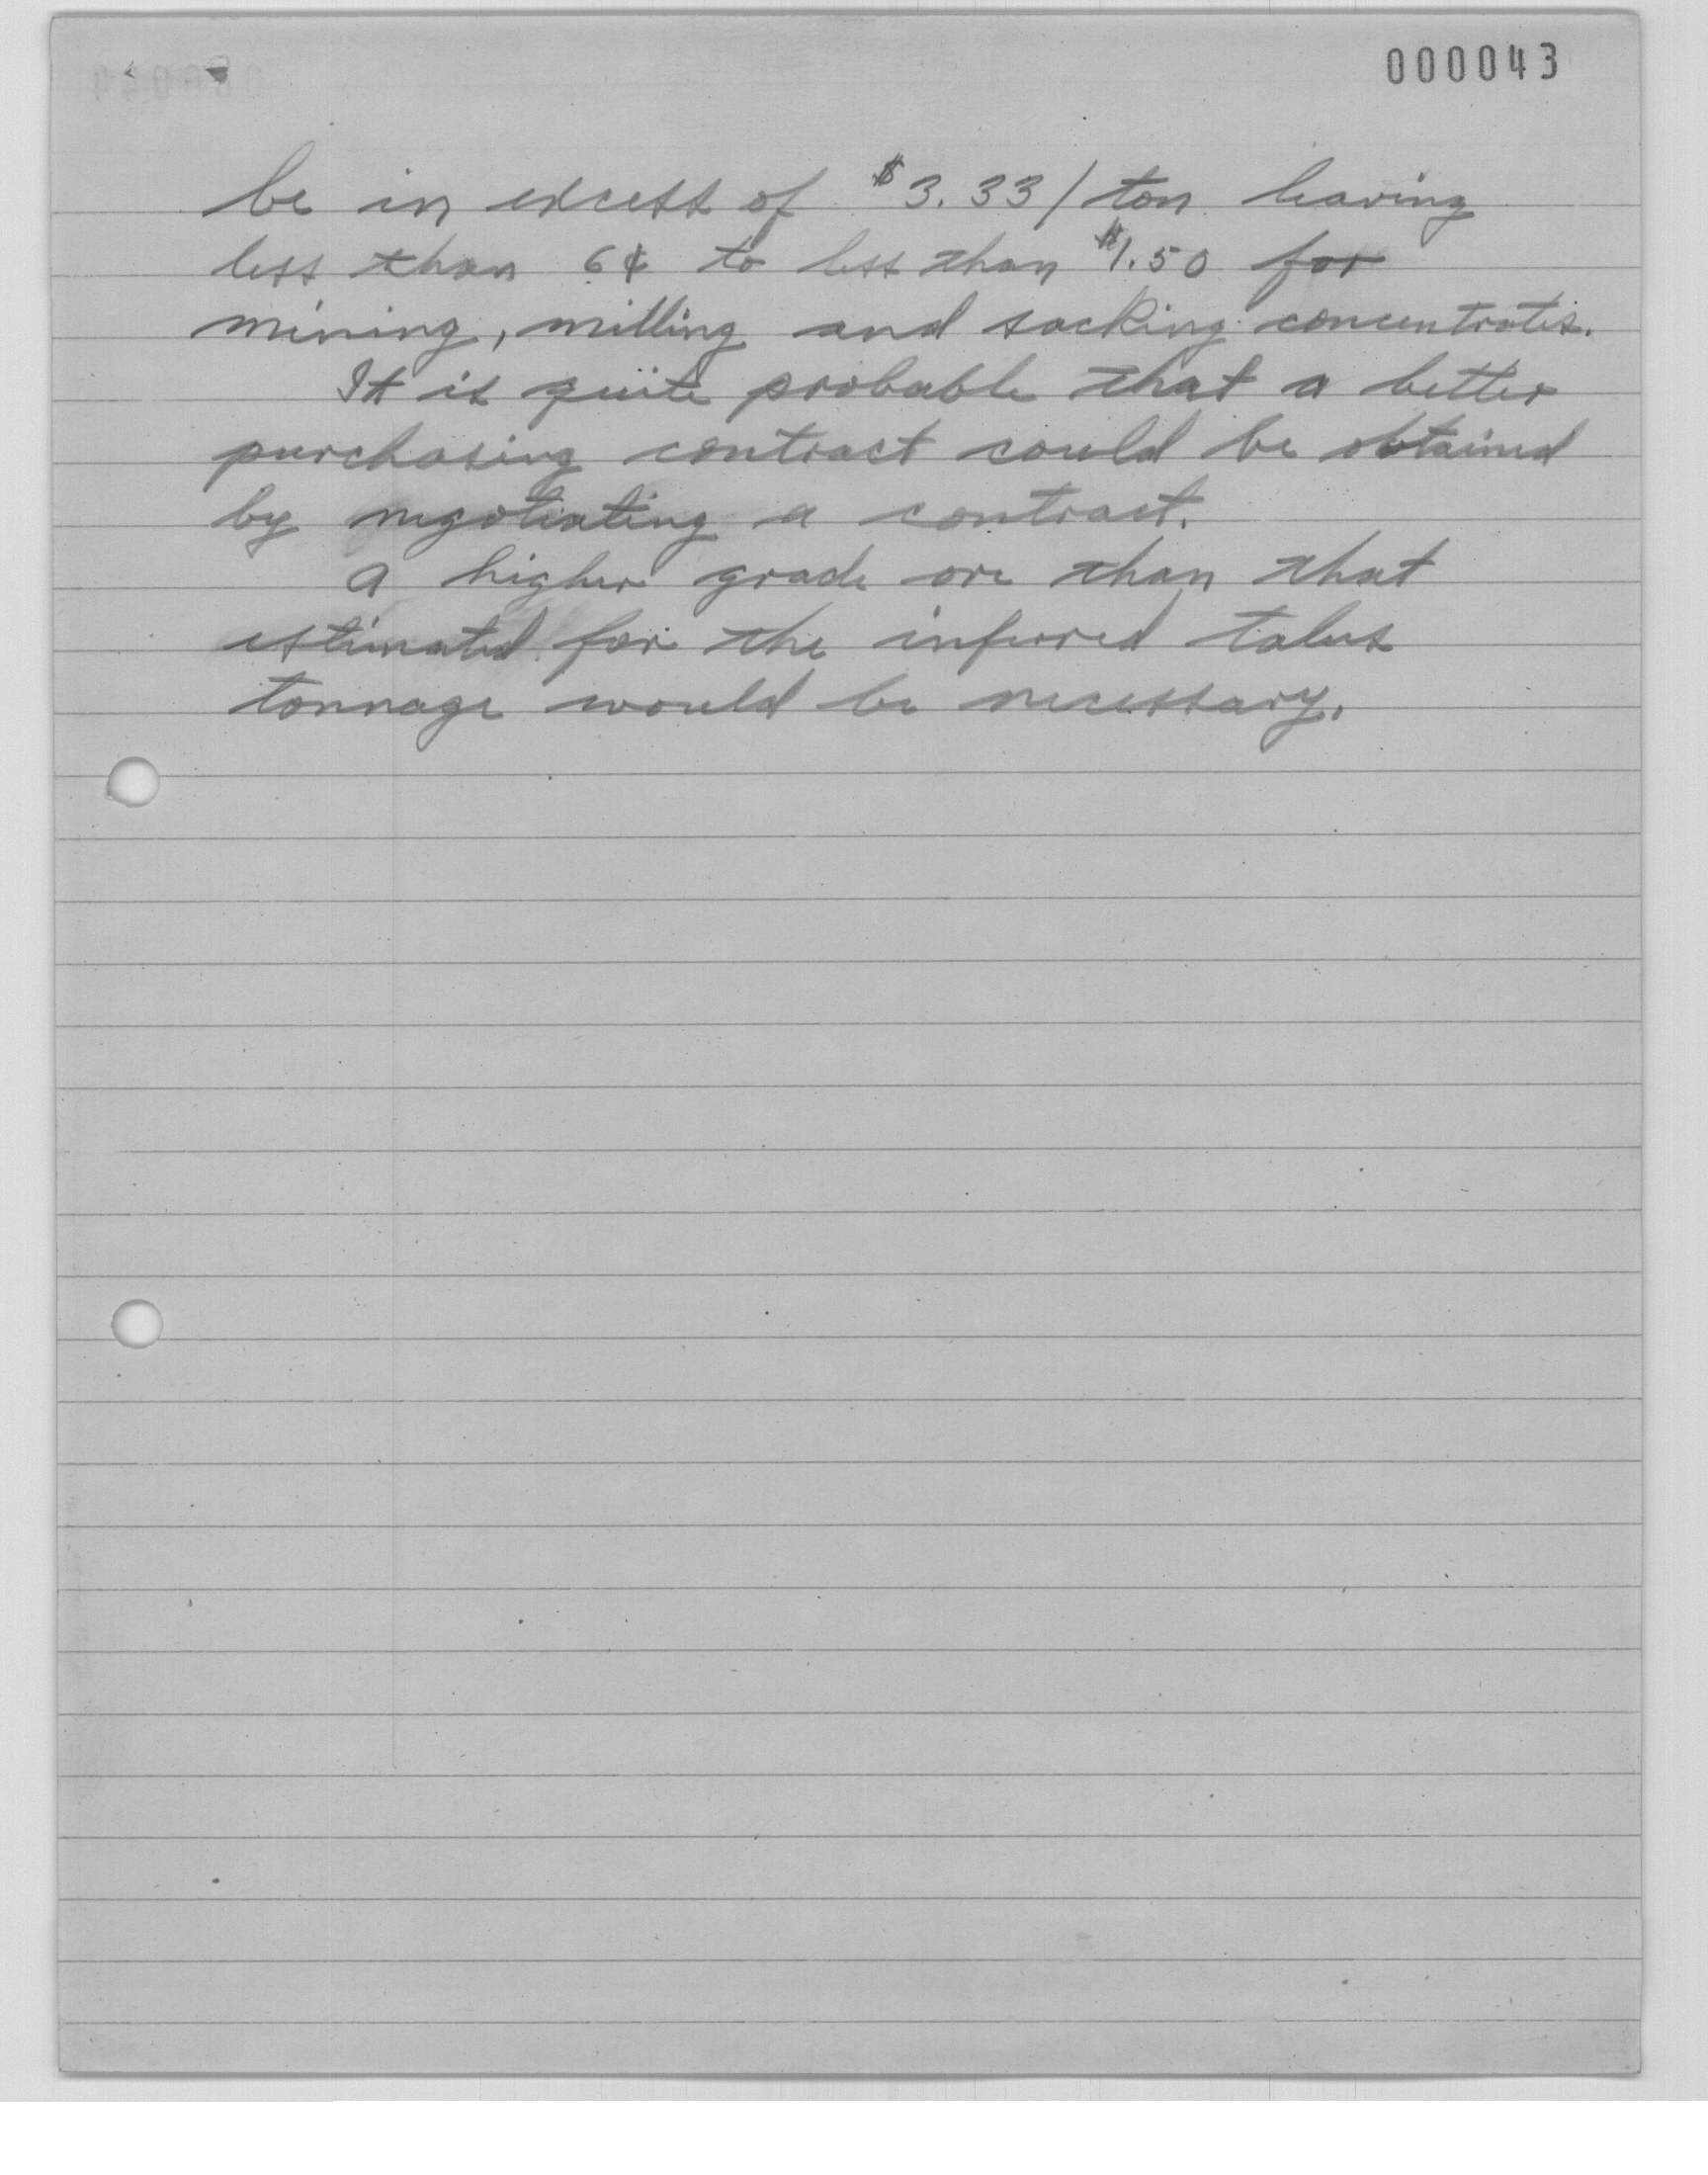 000043
be in excess of $3.33/ton leaving
less than 6¢ to less than $1.50 for
mining, milling and sacking concentrates.
It is quite probable that a better
purchasing contract could be obtained
by negotiating a contract.
A higher grade ore than that
estimated for the inferred talus
tonnage would be necessary.